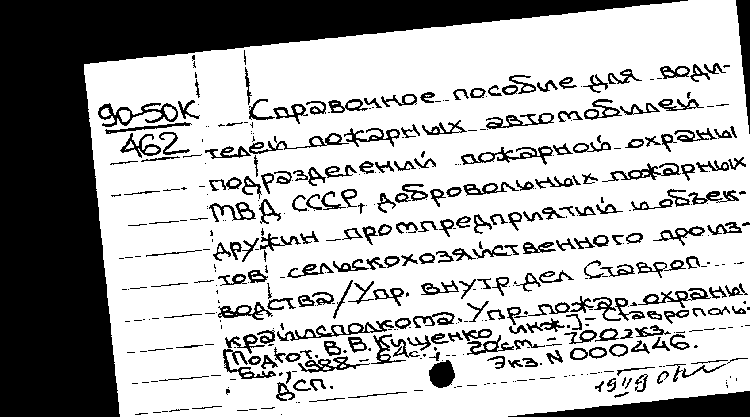 90-50К
462
Справочное пособие для води-
телей пожарных автомобилей
подразделений пожарной охраны
МВД СССР, добровольных пожарных
дружин промпредприятий и объек-
тов сельскохозяйственного произ-
водства/Упр. внутр. дел Ставроп.
крайисполкома. Упр. пожар. охраны
[Подгот. В.В. Куценко, инж.].- Ставрополь:
Б.и., 1988.- 64с.; 20см. - 700экз.
ДСП.
Экз. N 000446.